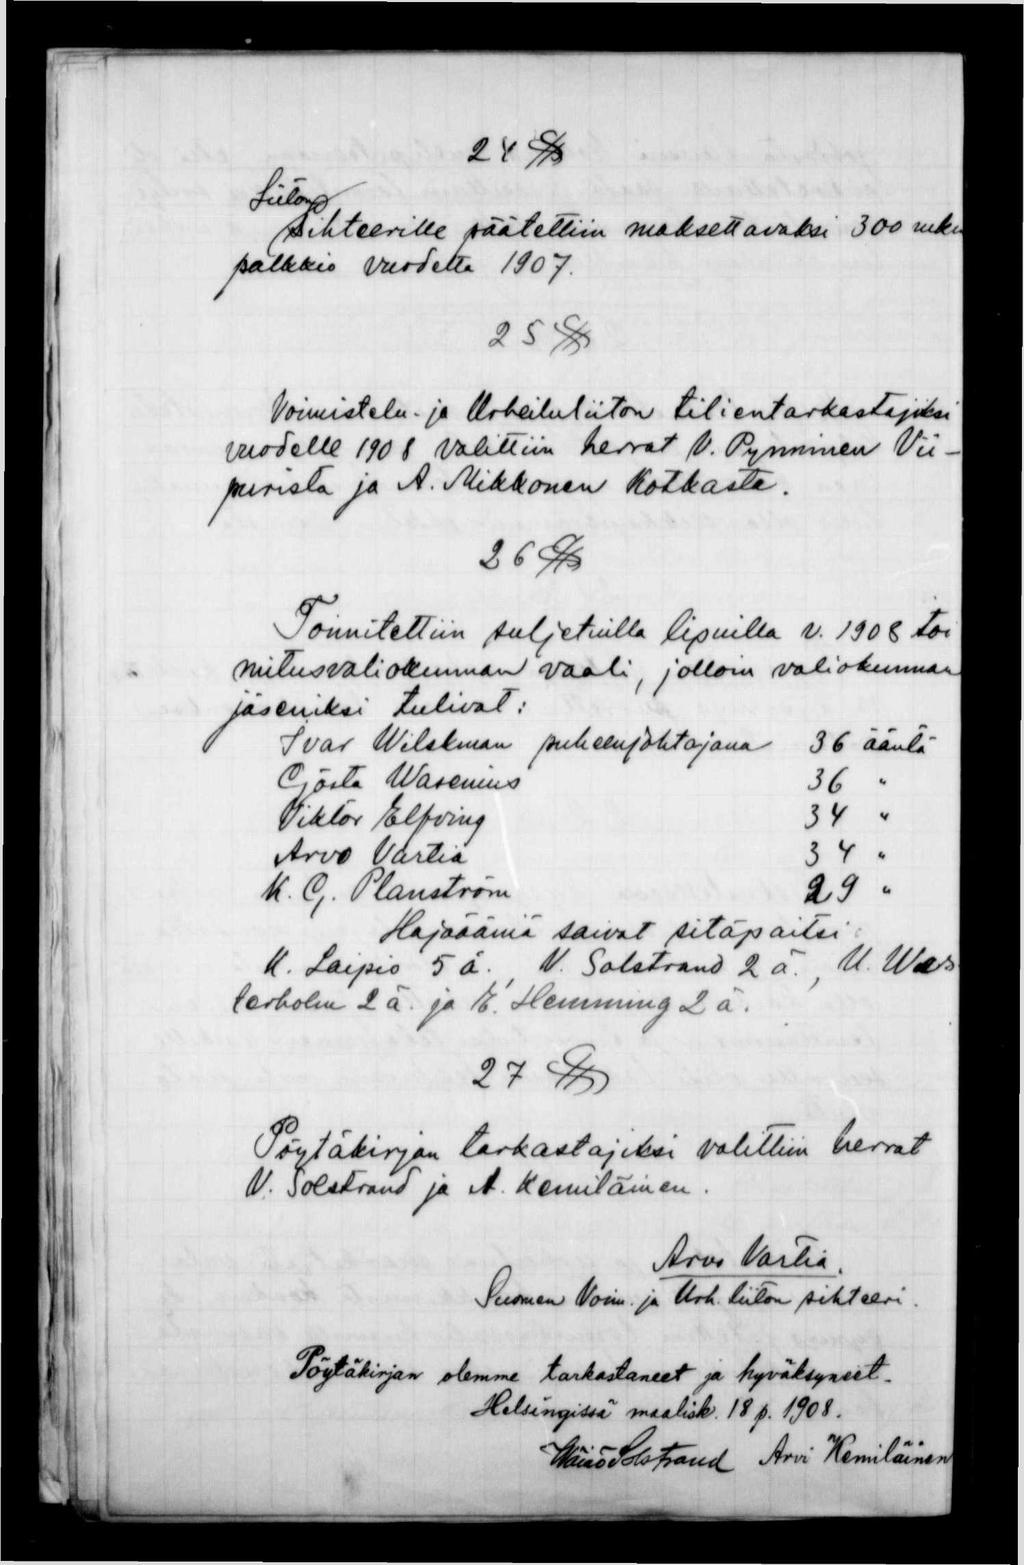 24 §
Liiton
sihteerille päätettiin maksettavaksi 300 mkn
palkkio vuodelta 1907.
25 §
Voimistelu- ja Urheiluliiton tilientarkastajiksi
vuodelle 1908 valittiin herrat V. Pynninen Vii-
purista ja A. Mikkonen Kotkasta.
26 §
Toimitettiin suljetuilla lipuilla v. 1908 toi
mitusvaliokunnan vaali, jolloin valiokunnan
jäseniksi tulivat:
Ivar Wilskman puheenjohtajana 36 ääntä
Gösta Wasenius 36 "
Viktor Elfving 34 "
Arvo Vartia 34 "
K. G. Planström 29 "
Hajaääniä saivat sitäpaitsi
K. Laipio 5 ä., V. Solstrand 2 ä., U. Wes
terholm 2 ä. ja E. Hemming 2 ä.
27 §
Pöytäkirjan tarkastajiksi valittiin herrat
V. Solstrand ja A. Kemiläinen.
Arvo Vartia.
Suomen Voim. ja Urh. liiton sihteeri.
Pöytäkirjan olemme tarkastaneet ja hyväksyneet.
Helsingissä maalisk. 18 p. 1908.
Wäinö Solstrand Arvi Kemiläinen